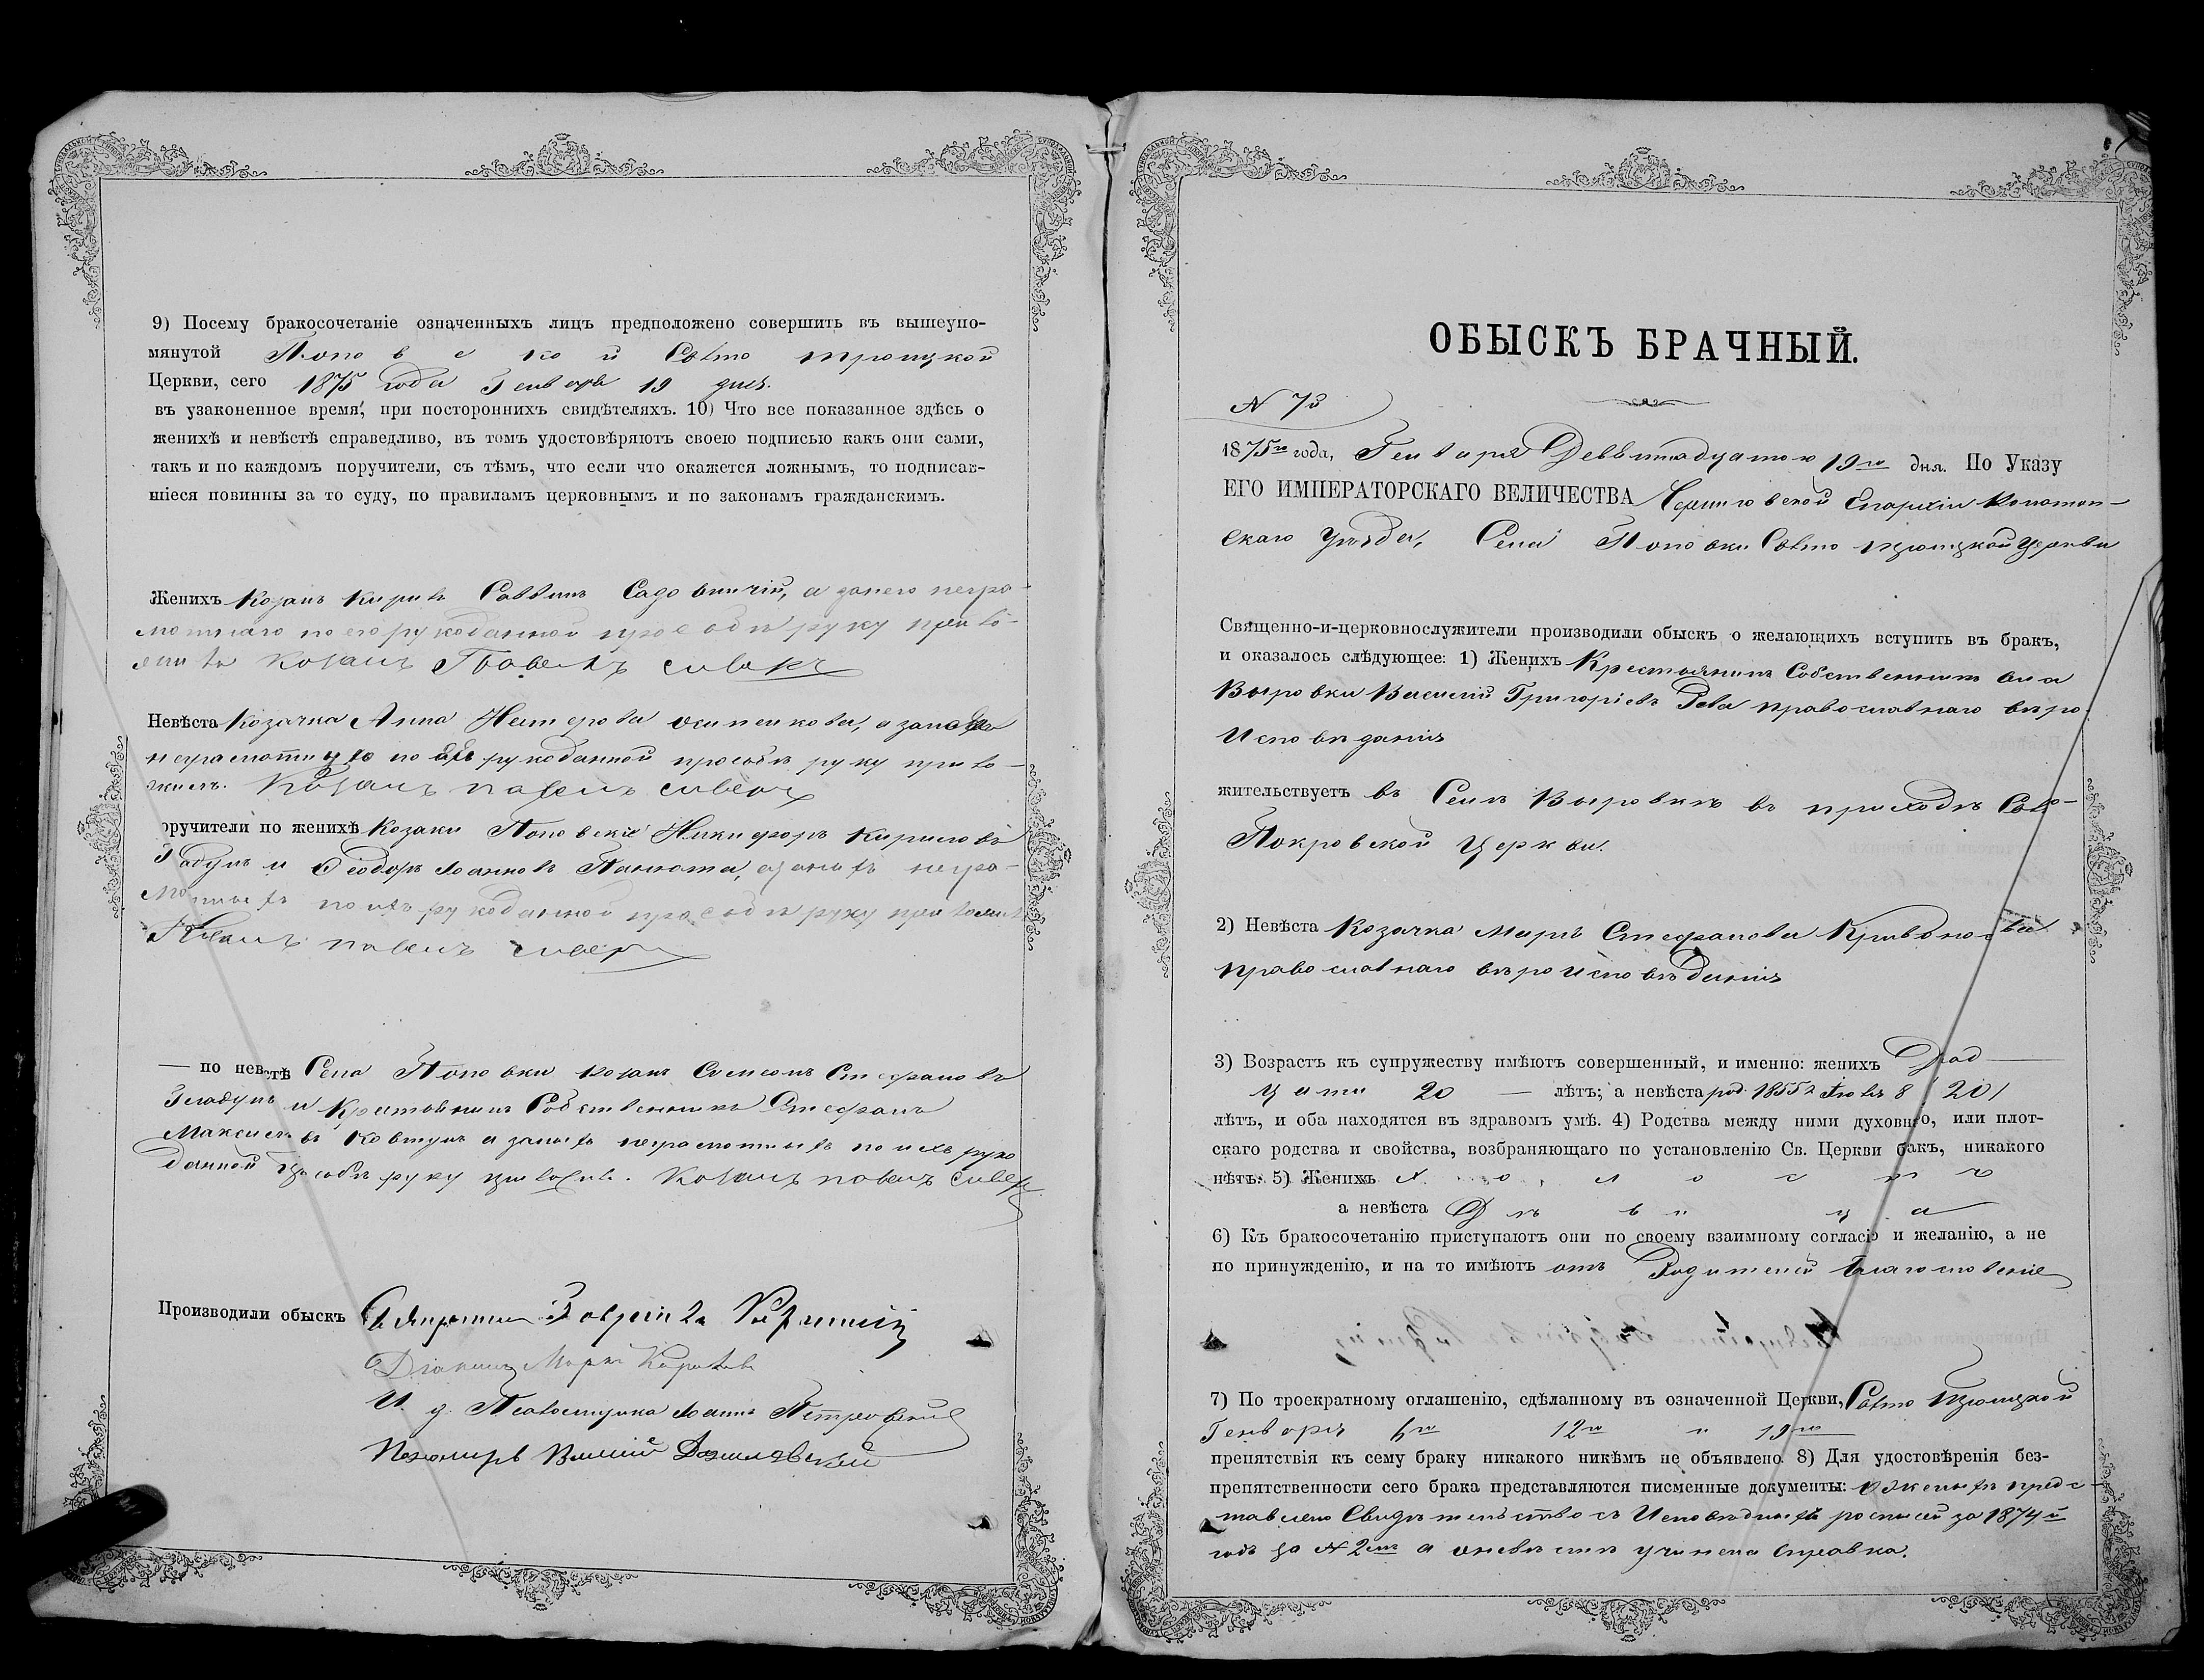 9) Посему бракосочетаніе означенныхъ лицъ предположено совершить въ вышеупо-
мянутой Поповской Свято Троицкой
Церкви, сего 1875 года Генваря 19 дня.
въ узаконенное время, при постороннихъ свидѣтеляхъ. 10) Что все показанное здѣсь о
женихѣ и невѣстѣ справедливо, въ томъ удостовѣряютъ своею подписью какъ они сами,
такъ и по каждомъ поручители, съ тѣмъ, что если что окажется ложнымъ, то подписав-
шіеся повинны за то суду, по правиламъ церковнымъ и по законамъ гражданскимъ.
Женихъ Козакъ Кирилъ Саввинъ Садовничій, а за него негра-
мотнаго по его рукоданной прозбѣ руку прило-
жилъ Козакъ Павелъ
Невѣста Козачка Анна
неграмотную по ея рукоданной прозбѣ руку прило-
жилъ. Козакъ Павелъ
оручители по женихѣ Козаки Поповскіе Никифоръ Кириловъ
и Ѳеодоръ Іоанновъ а за нихъ негра-
мотныхъ по ихъ рукоданной прозбѣ руку приложилъ
Козакъ Павелъ
— по невѣстѣ Села Поповки козакъ Симеонъ Стефановъ
и Крестьянинъ Собственникъ Стефанъ
Максимовъ Ковтунъ а за нихъ неграмотныхъ по ихъ руко
данной прозбѣ руку приложилъ. Козакъ Павелъ
Производили обыскъ Священникъ
Діаконъ Маркъ
И. д. Псаломщика Іоаннъ Петровскій
Пономарь
ОБЫСКЪ БРАЧНЫЙ.
N 7й
1875го года, Генваря Девятнадцатого 19го дня. По Указу
ЕГО ИМПЕРАТОРСКАГО ВЕЛИЧЕСТВА Черниговской Епархіи Конотоп-
скаго Уѣзда, Села Поповки Свято Троицкой Церкви
Священно-и-церковнослужители производили обыскъ о желающихъ вступить въ бракъ,
и оказалось слѣдующее: 1) Женихъ Крестьянинъ Собственникъ села
Выровки Василій Григоріевъ Рева православнаго вѣро
Исповѣданія
жительствуетъ въ Селѣ Выровкѣ въ приходѣ Свято-
Покровской Церкви.
2) Невѣста Козачка Марія Стефанова Кривоносова
православнаго вѣроИсповѣданія
3) Возрастъ къ супружеству имѣютъ совершенный, и именно: женихъ Двад—
цати 20 — лѣтъ; а невѣста род. 1855 г 8 / 20 /
лѣтъ, и оба находятся въ здравомъ умѣ. 4) Родства между ними духовнго, или плот-
скаго родства и свойства, возбраняющаго по установленію Св. Церкви бакъ, никакого
нѣтъ: 5) Женихъ Холостъ
а невѣста Дѣвица
6) Къ бракосочетанію приступаютъ они по своему взаимному согласію и желанію, а не
по принужденію, и на то имѣютъ отъ Родителей благословеніе
7) По троекратному оглашенію, сдѣланному въ означенной Церкви, Свято Троицкой
Генваря 6го 12го и 19го
препятствія къ сему браку никакого никѣмъ не объявлено. 8) Для удостовѣренія без-
препятственности сего брака представляются писменные документы: О женихѣ предс-
тавлено Свидѣтельство съ Исповѣдныхъ росписей за 1874й
годъ за N 2мъ а о невѣстѣ учинена справка.